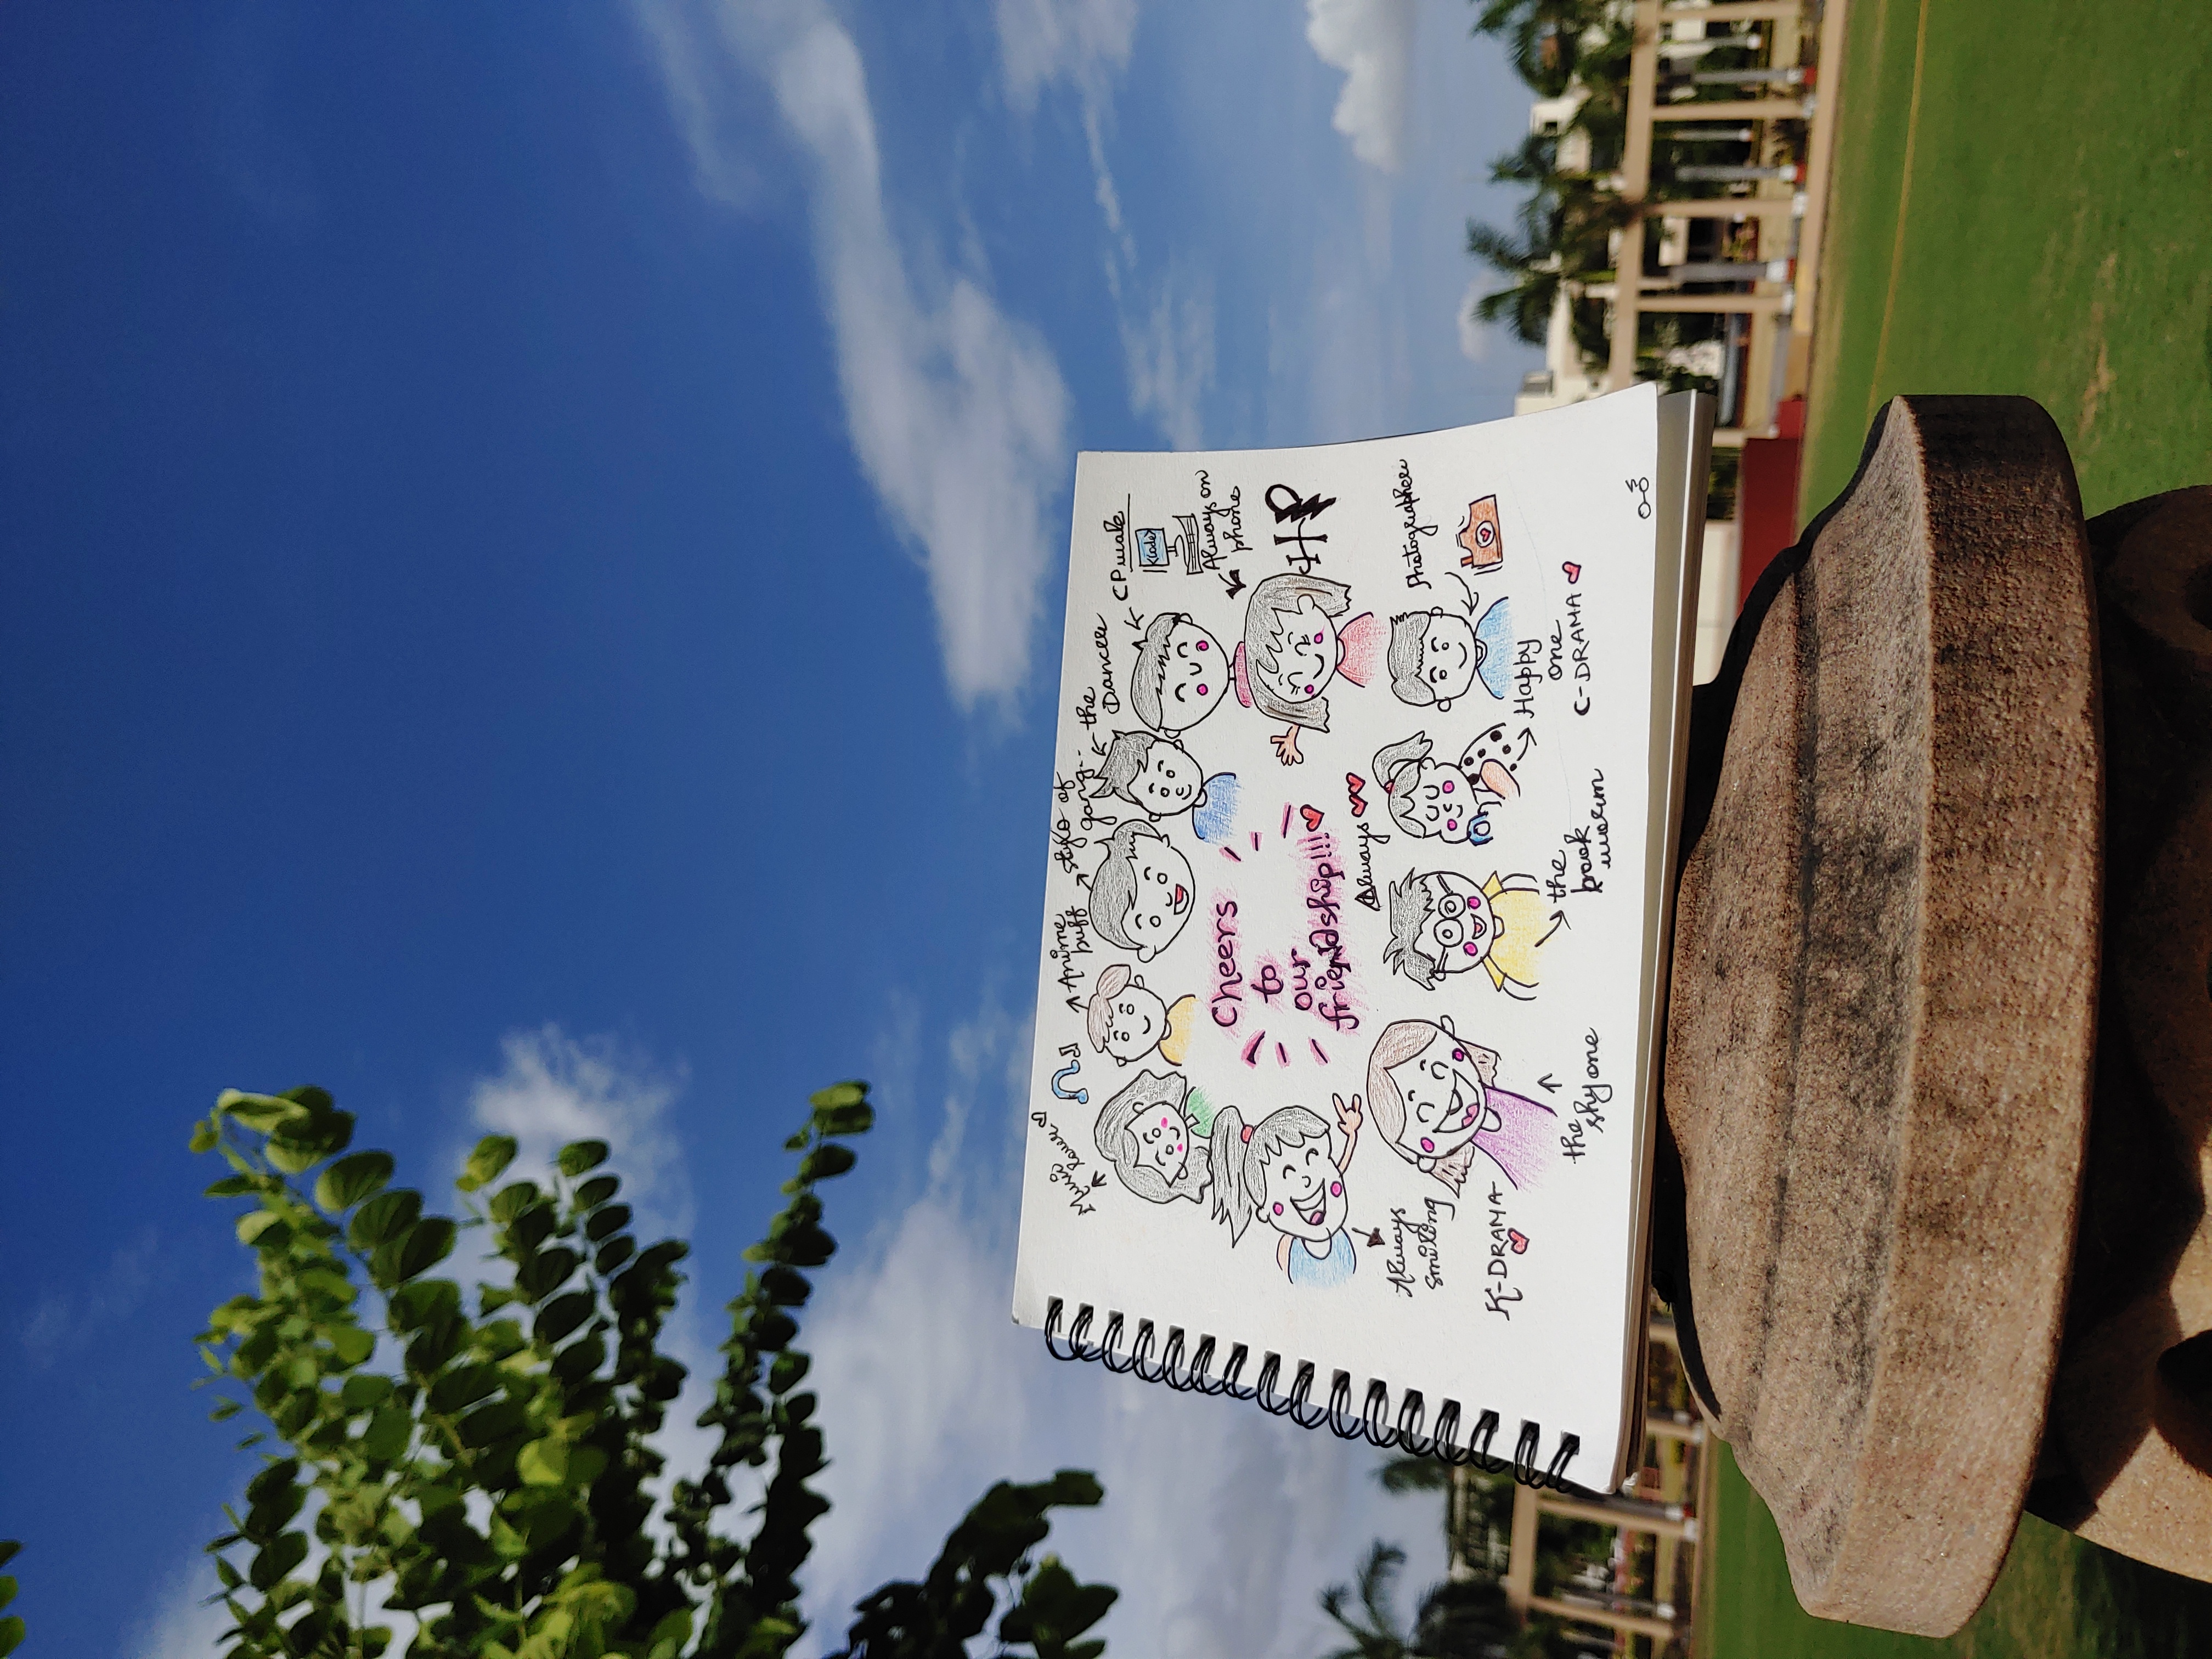 Music
lover
Anime
buff
style of
gang..
the
Dancer
CP wale
<code>
Always on
phone
HP
Cheers
to
our
friendship!!!
Always
Always
smiling
Photographer
K-DRAMA
the
shy one
the
book
worm
Happy
one
C-DRAMA